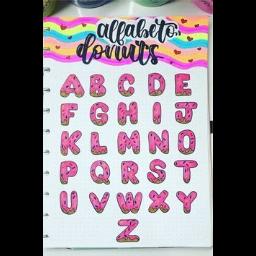 alfabeto
donuts
A B C D E
F G H I J
K L M N O
P Q R S T
U V W X Y
Z